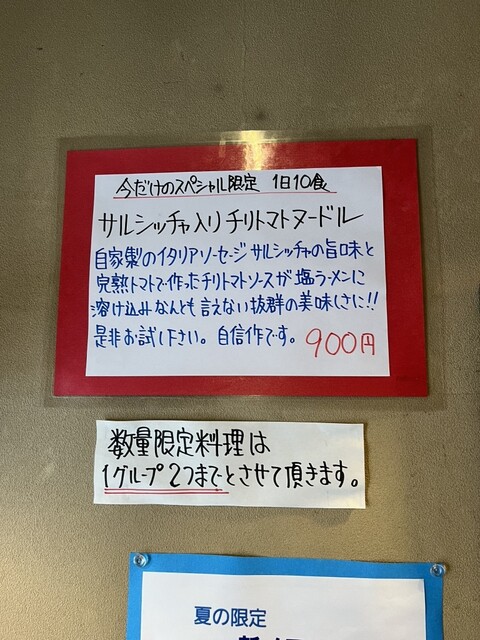 今だけのスペシャル限定 1日10食
サルシッチャ入りチリトマトヌードル
自家製のイタリアソーセージサルシッチャの旨味と
完熟トマトで作ったチリトマトソースが塩ラーメンに
溶け込みなんとも言えない抜群の美味しさに!!
是非お試し下さい。自信作です。 900円
数量限定料理は
1グループ2つまでとさせて頂きます。
夏の限定